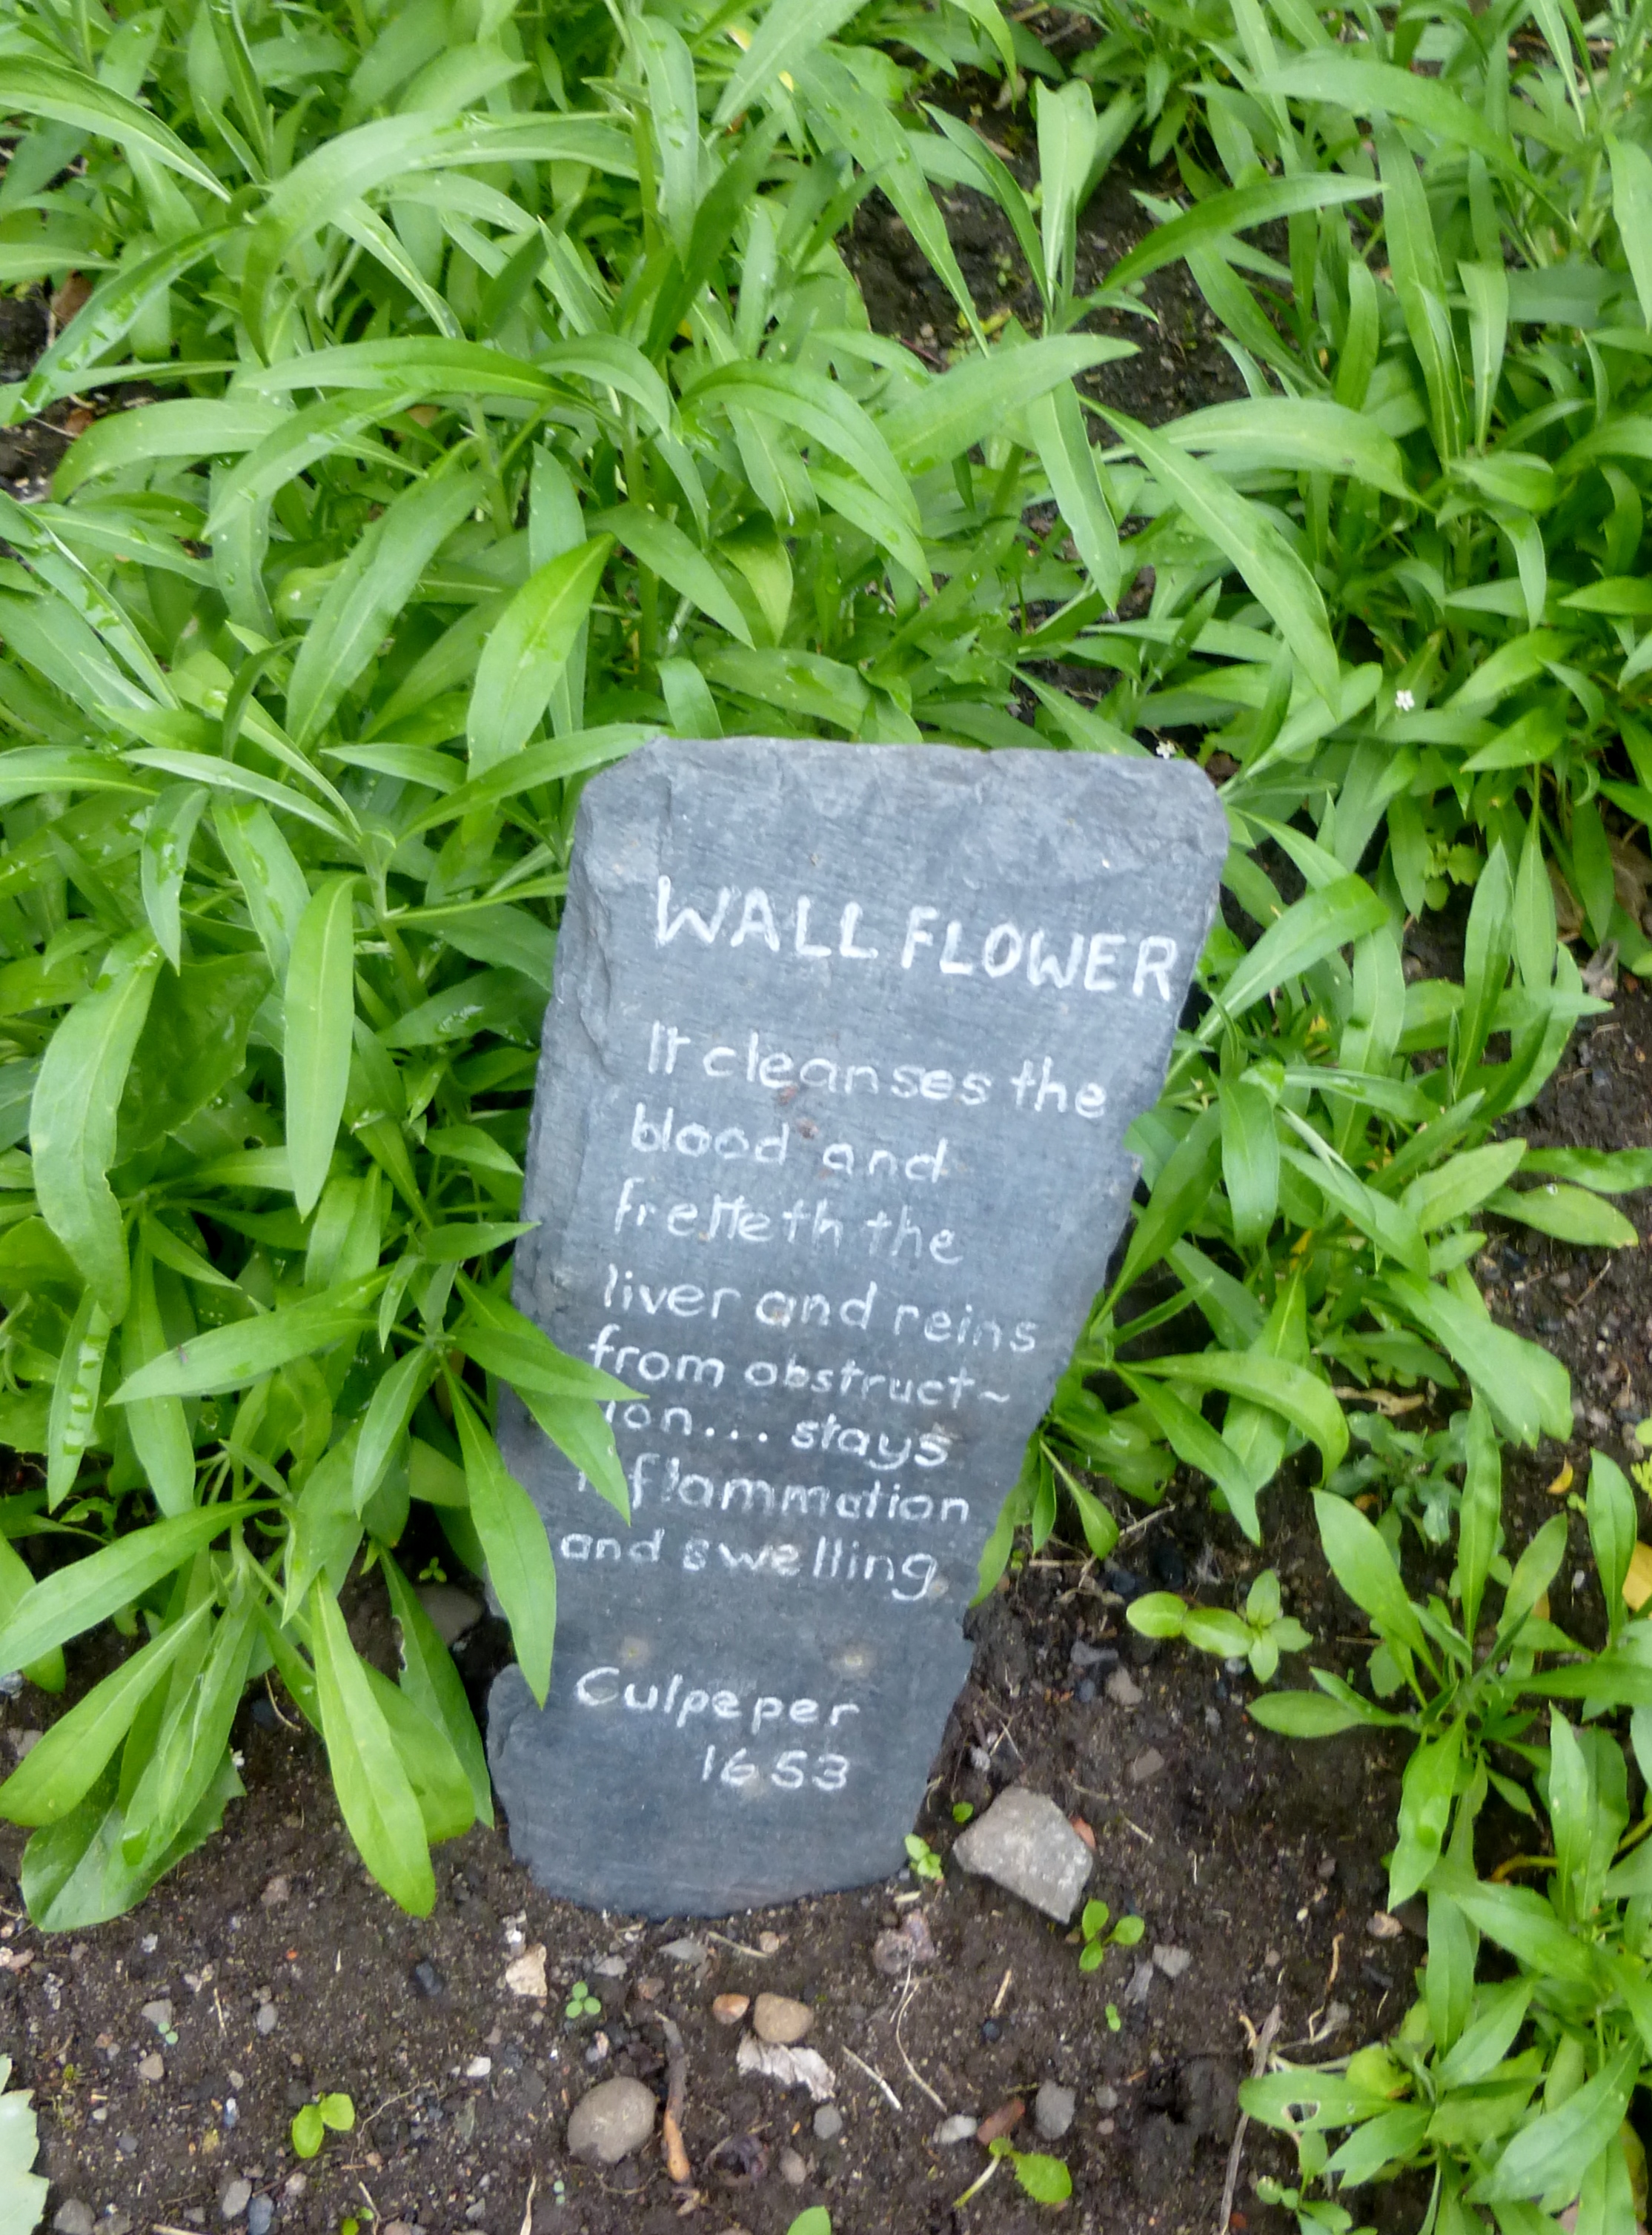 WALL FLOWER
It cleanses the
blood and
fretteth the
liver and reins
from obstruct~
ion... stays
inflammation
and swelling
Culpeper
1653